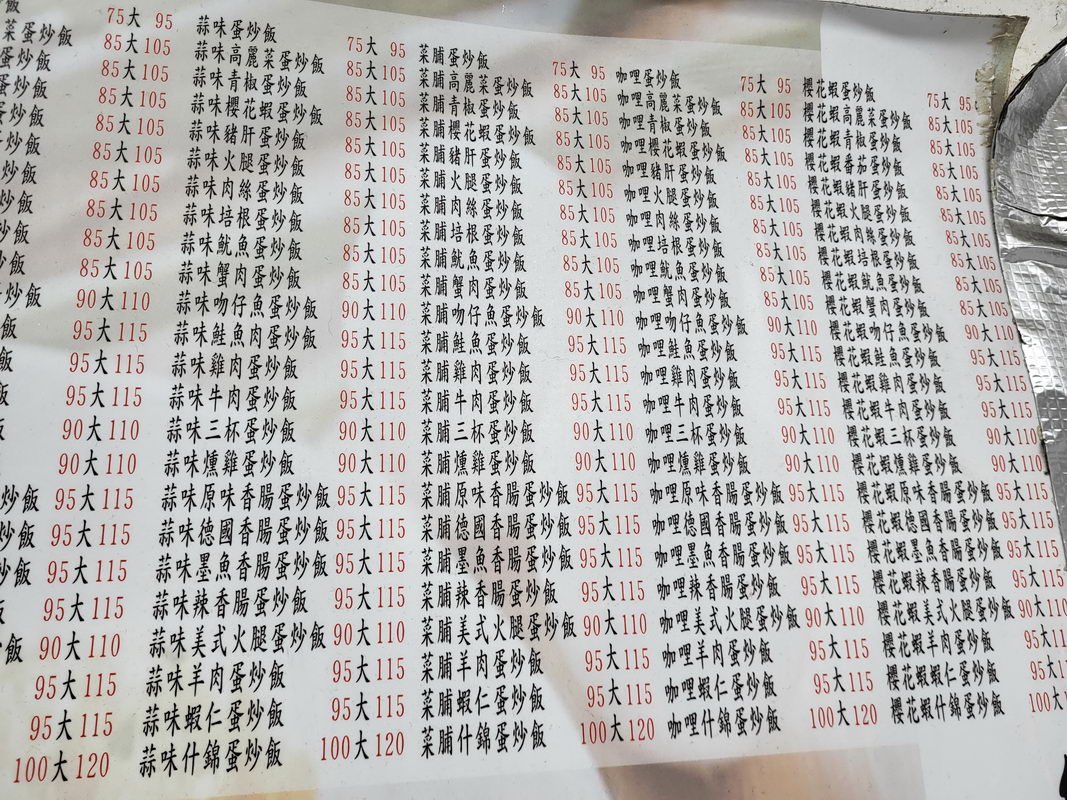 飯 75大 95
菜蛋炒飯 85大105
蛋炒飯 85大105
蛋炒飯 85大105
蛋炒飯 85大105
炒飯 85大105
炒飯 85大105
炒飯 85大105
炒飯 85大105
飯 85大105
炒飯 90大110
飯 95大115
飯 95大115
95大115
90大110
90大110
炒飯 95大115
炒飯 95大115
炒飯 95大115
95大115
飯 90大110
95大115
95大115
100大120
蒜味蛋炒飯 75大 95
蒜味高麗菜蛋炒飯 85大105
蒜味青椒蛋炒飯 85大105
蒜味櫻花蝦蛋炒飯 85大105
蒜味豬肝蛋炒飯 85大105
蒜味火腿蛋炒飯 85大105
蒜味肉絲蛋炒飯 85大105
蒜味培根蛋炒飯 85大105
蒜味魷魚蛋炒飯 85大105
蒜味蟹肉蛋炒飯 85大105
蒜味吻仔魚蛋炒飯 90大110
蒜味鮭魚肉蛋炒飯 95大115
蒜味雞肉蛋炒飯 95大115
蒜味牛肉蛋炒飯 95大115
蒜味三杯蛋炒飯 90大110
蒜味燻雞蛋炒飯 90大110
蒜味原味香腸蛋炒飯 95大115
蒜味德國香腸蛋炒飯 95大115
蒜味墨魚香腸蛋炒飯 95大115
蒜味辣香腸蛋炒飯 95大115
蒜味美式火腿蛋炒飯 90大110
蒜味羊肉蛋炒飯 95大115
蒜味蝦仁蛋炒飯 95大115
蒜味什錦蛋炒飯 100大120
菜脯蛋炒飯 75大 95
菜脯高麗菜蛋炒飯 85大105
菜脯青椒蛋炒飯 85大105
菜脯櫻花蝦蛋炒飯 85大105
菜脯豬肝蛋炒飯 85大105
菜脯火腿蛋炒飯 85大105
菜脯肉絲蛋炒飯 85大105
菜脯培根蛋炒飯 85大105
菜脯魷魚蛋炒飯 85大105
菜脯蟹肉蛋炒飯 85大105
菜脯吻仔魚蛋炒飯 90大110
菜脯鮭魚蛋炒飯 95大115
菜脯雞肉蛋炒飯 95大115
菜脯牛肉蛋炒飯 95大115
菜脯三杯蛋炒飯 90大110
菜脯燻雞蛋炒飯 90大110
菜脯原味香腸蛋炒飯 95大115
菜脯德國香腸蛋炒飯 95大115
菜脯墨魚香腸蛋炒飯 95大115
菜脯辣香腸蛋炒飯 95大115
菜脯美式火腿蛋炒飯 90大110
菜脯羊肉蛋炒飯 95大115
菜脯蝦仁蛋炒飯 95大115
菜脯什錦蛋炒飯 100大120
咖哩蛋炒飯 75大 95
咖哩高麗菜蛋炒飯 85大105
咖哩青椒蛋炒飯 85大105
咖哩櫻花蝦蛋炒飯 85大105
咖哩豬肝蛋炒飯 85大105
咖哩火腿蛋炒飯 85大105
咖哩肉絲蛋炒飯 85大105
咖哩培根蛋炒飯 85大105
咖哩魷魚蛋炒飯 85大105
咖哩蟹肉蛋炒飯 85大105
咖哩吻仔魚蛋炒飯 90大110
咖哩鮭魚蛋炒飯 95大115
咖哩雞肉蛋炒飯 95大115
咖哩牛肉蛋炒飯 95大115
咖哩三杯蛋炒飯 90大110
咖哩燻雞蛋炒飯 90大110
咖哩原味香腸蛋炒飯 95大115
咖哩德國香腸蛋炒飯 95大115
咖哩墨魚香腸蛋炒飯 95大115
咖哩辣香腸蛋炒飯 95大115
咖哩美式火腿蛋炒飯 90大110
咖哩羊肉蛋炒飯 95大115
咖哩蝦仁蛋炒飯 95大115
咖哩什錦蛋炒飯 100大120
櫻花蝦蛋炒飯 75大 95
櫻花蝦高麗菜蛋炒飯 85大105
櫻花蝦青椒蛋炒飯 85大105
櫻花蝦番茄蛋炒飯 85大105
櫻花蝦豬肝蛋炒飯 85大105
櫻花蝦火腿蛋炒飯 85大105
櫻花蝦肉絲蛋炒飯 85大105
櫻花蝦培根蛋炒飯 85大105
櫻花蝦魷魚蛋炒飯 85大105
櫻花蝦蟹肉蛋炒飯 85大105
櫻花蝦吻仔魚蛋炒飯 90大110
櫻花蝦鮭魚蛋炒飯 95大115
櫻花蝦雞肉蛋炒飯 95大115
櫻花蝦牛肉蛋炒飯 95大115
櫻花蝦三杯蛋炒飯 90大110
櫻花蝦燻雞蛋炒飯 90大110
櫻花蝦原味香腸蛋炒飯 95大115
櫻花蝦德國香腸蛋炒飯 95大115
櫻花蝦墨魚香腸蛋炒飯 95大115
櫻花蝦辣香腸蛋炒飯 95大115
櫻花蝦美式火腿蛋炒飯 90大110
櫻花蝦羊肉蛋炒飯 95大11
櫻花蝦蝦仁蛋炒飯 95大1
櫻花蝦什錦蛋炒飯 100大